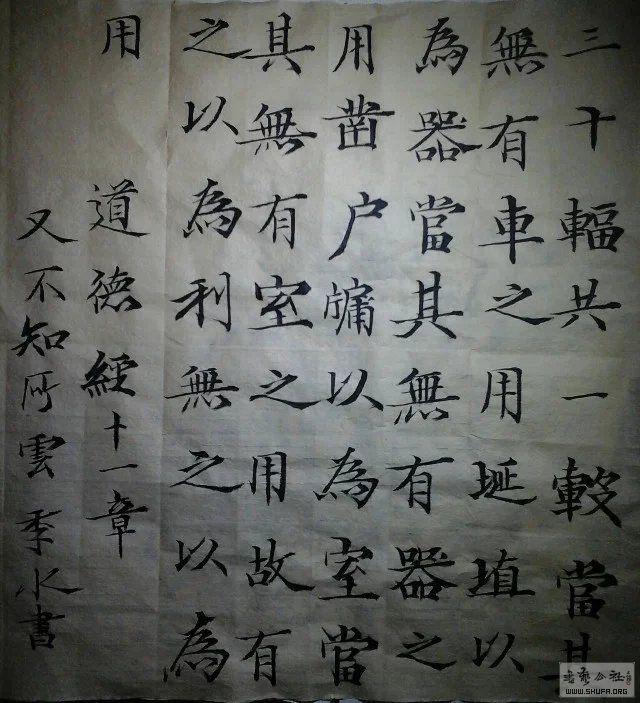 三十輻共一轂當其
無有車之用埏埴以
為器當其無有器之
用凿户牖以為室當
其無有室之用故有
之以為利無之以為
用
道德經十一章
又不知所雲季水書
書藝公社
WWW.SHUFA.ORG